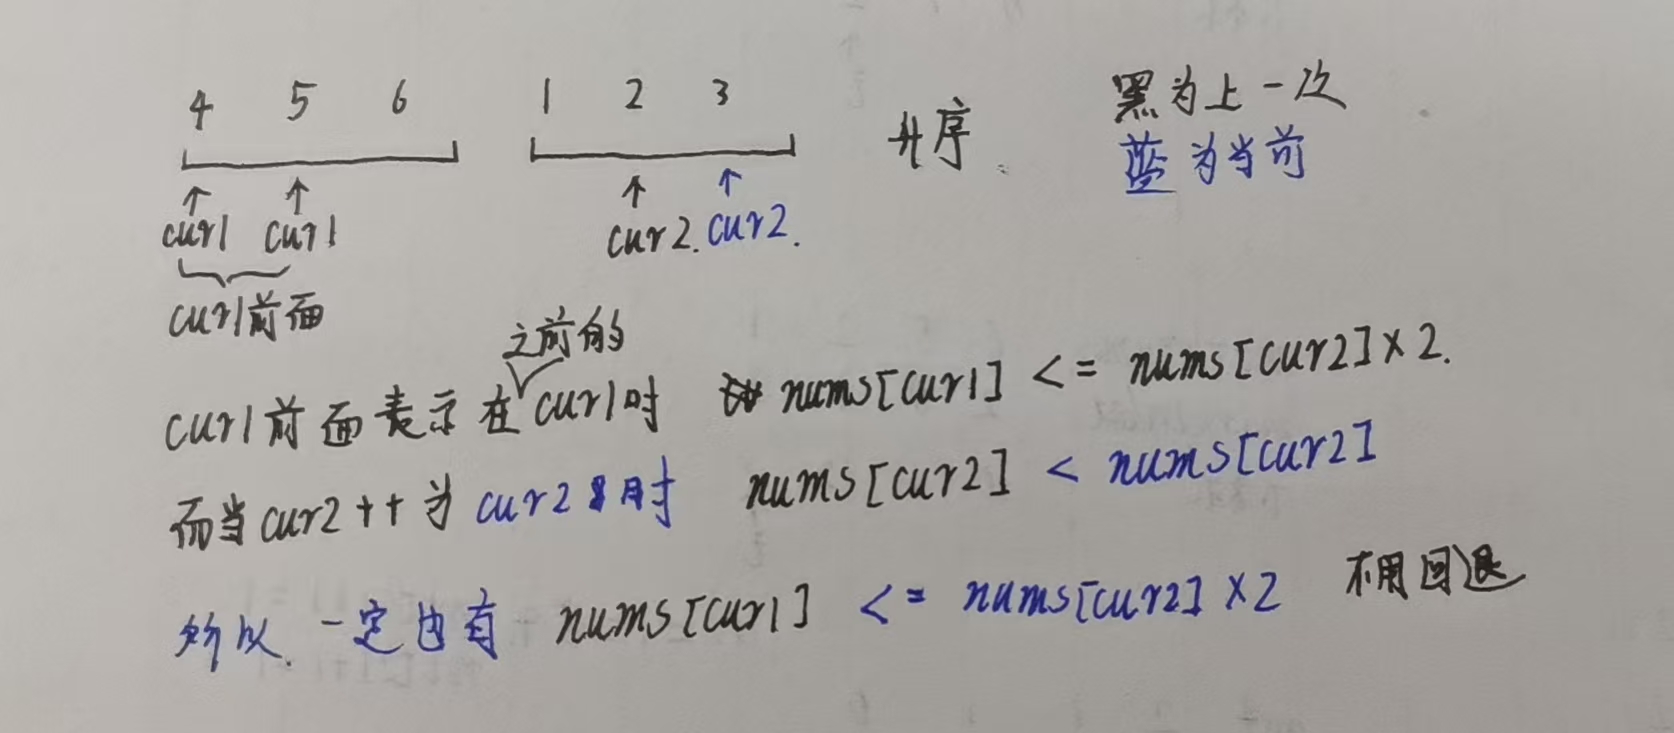 4 5 6 1 2 3 升序 黑为上一次
蓝为当前
cur1 cur1 cur2. cur2.
cur1前面
之前的
cur1前面表示在cur1时 nums[cur1] <= nums[cur2]×2.
而当cur2++为cur2时 nums[cur2] < nums[cur2]
所以.一定也有 nums[cur1] <= nums[cur2]×2 不用回退